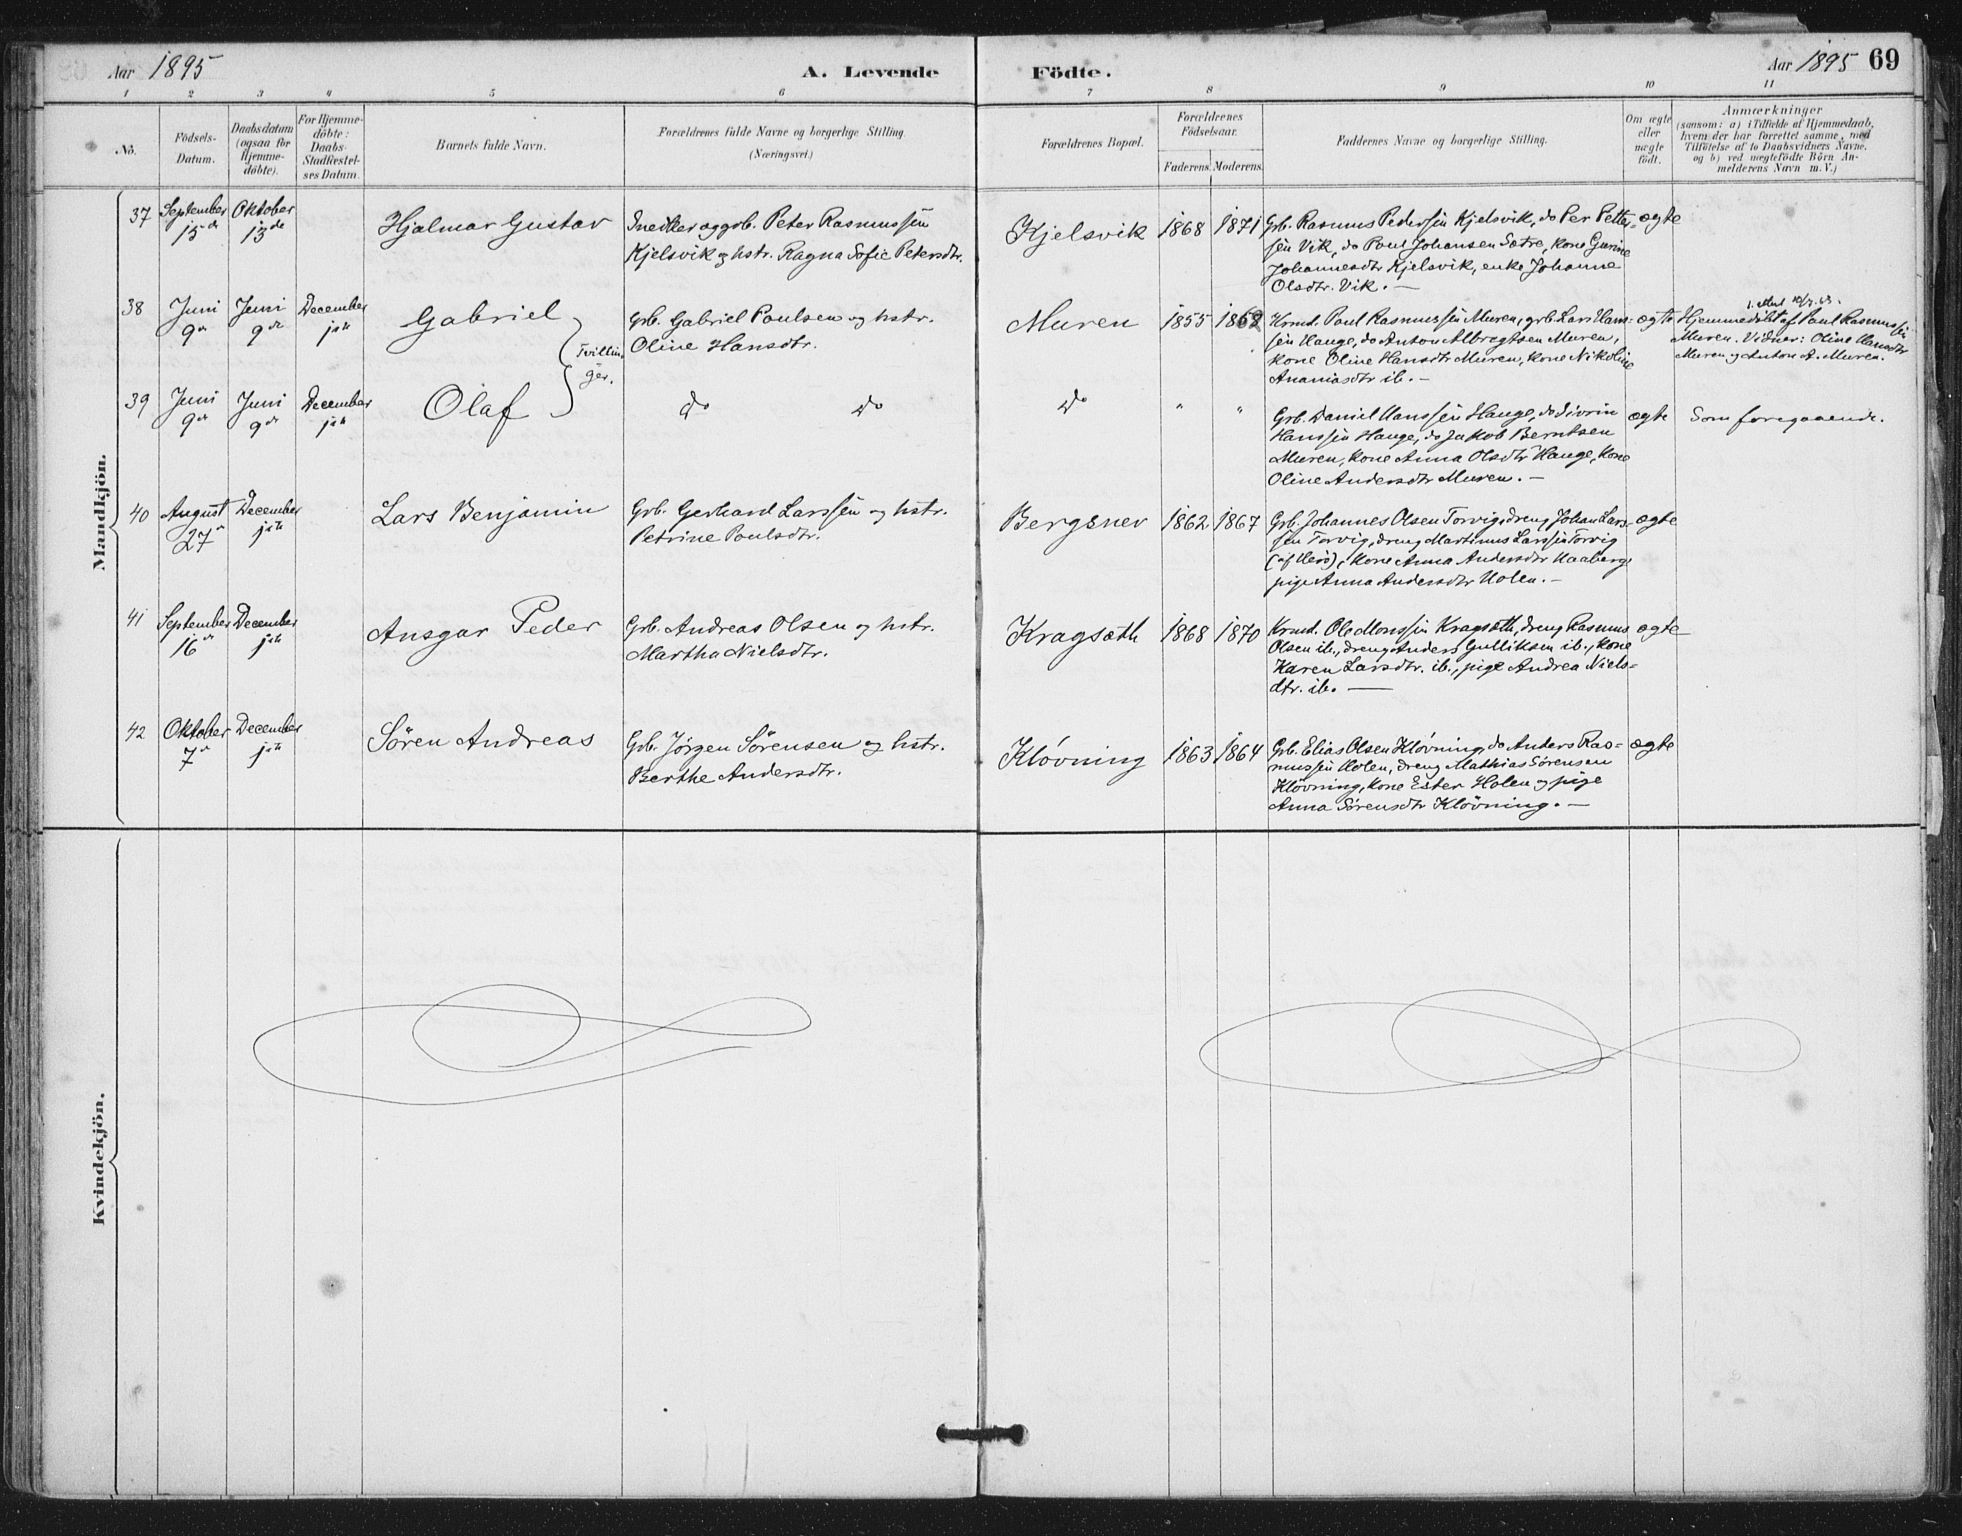 Aar 1895
A. Levende Födte.
Aar 1895 69
1 2 3 4 5 6 7 8 9 10 11
No.
Födsels-
Datum.
Daabsdatum
(ogsaa for
Hjemme-
döbte).
For Hjemme-
döbte:
Daabs-
Stadfæstel-
ses Datum.
Barnets fulde Navn.
Forældrenes fulde Navne og borgerlige Stilling.
(Næringsvei.)
Forældrenes Bopæl.
Forældrenes
Födselsaar.
Faderens. Moderens.
Faddernes Navne og borgerlige Stilling.
Om ægte
eller
uægte
födt.
Anmærkninger
(saasom: a) i Tilfælde af Hjemmedaab,
hvem der har forrettet samme, med
Tilföielse af to Daabsvidners Navne,
og b) ved uægtefödte Börn An-
melderens Navn m. V.)
Mandkjön.
37
September
15de
Oktober
13de
Hjalmar Gustav
Snedker og grb. Peter Rasmussen
Kjelsvik og hstr. Ragna Sofie Petersdtr.
Kjelsvik
1868
1871
Grb. Rasmus Pedersen Kjelsvik, do Per Petter-
sen Vik, do Poul Johansen Sætre, kone Gurine
Johannesdtr Kjelsvik, enke Johanne
Olsdtr. Vik. —
ægte
38
Juni
9de
Juni
9de
December
1ste
Gabriel
Tvillin-
ger.
Grb. Gabriel Poulsen og hstr.
Oline Hansdtr.
Muren
1855
1862
Krmd. Poul Rasmussen Muren, grb. Lars Hans-
sen Hauge, do Anton Albregtsen Muren,
kone Oline Hansdtr Muren, kone Nikoline
Ananiasdtr ib. —
ægte
Hjemmedöbt af Poul Rasmussen
Muren. Vidner: Oline Hansdtr
Muren og Anton A. Muren.
39
Juni
9de
Juni
9de
December
1ste
Olaf
do do
do
" "
Grb. Daniel Hanssen Hauge, do Sivrin
Hanssen Hauge, do Jakob Berntsen
Muren, kone Anna Olsdtr Hauge, kone
Oline Andersdtr Muren. —
ægte
Som foregaaende.
40
August
27
December
1ste
Lars Benjamin
Grb. Gerhard Larssen og hstr.
Petrine Poulsdtr.
Bergsnev
1862
1867
Grb. Johannes Olsen Torvig, dreng Johan Lars-
sen Torvig, dreng Martinus Larssen Torvig
(af Herö), kone Anna Andersdtr Haaberg,
pige Anna Andersdtr Holen. —
ægte
41
September
16de
December
1ste
Ansgar Peder
Grb. Andreas Olsen og hstr.
Martha Nielsdtr.
Kragsæth
1868
1870
Krmd. Ole Monssen Kragsæth, dreng Rasmus
Olsen ib., dreng Anders Gulliksen ib., kone
Karen Larsdtr. ib., pige Andrea Niels-
dtr. ib. —
ægte
42
Oktober
7de
December
1ste
Sören Andreas
Grb. Jörgen Sörensen og hstr.
Berthe Andersdtr.
Klövning
1863
1864
Grb. Elias Olsen Klövning, do Anders Ras-
mussen Holen, dreng Mathias Sörensen
Klövning, kone Ester Holen og pige
Anna Sörensdtr Klövning. —
ægte
Kvindekjön.